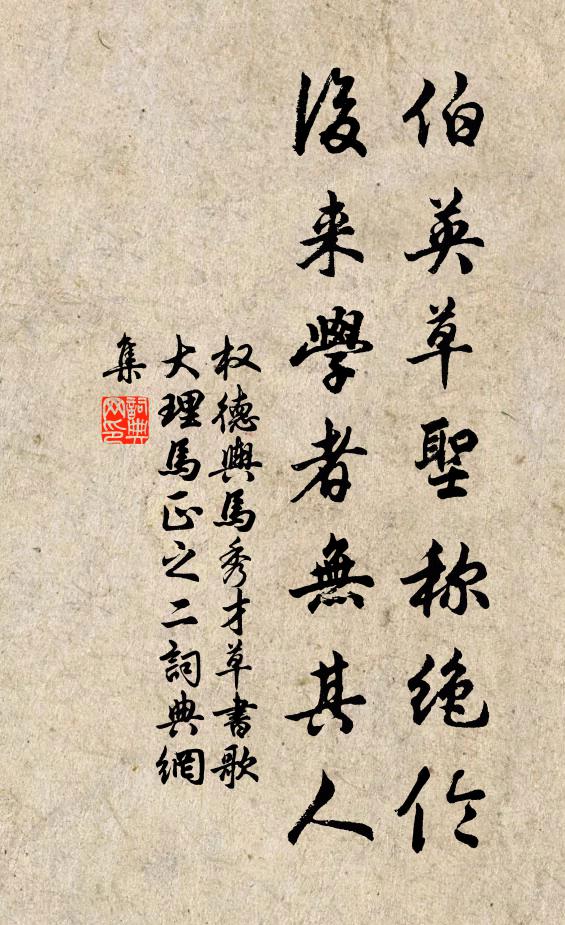 伯英草聖称絶伦
後来學者無其人
权德輿馬秀才草書歌
大理馬正之二詞典網
集
詞典网印